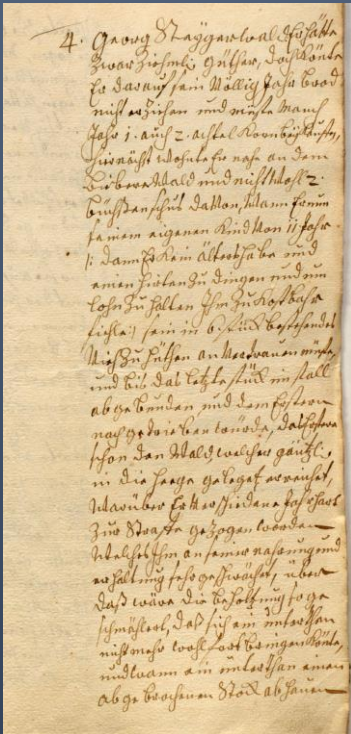 4. Georg Steÿgerwald Er hätte
zwar Ziehmli. Güther, doch könte
Er darauf sein Völlig Jahr brod
nicht erziehen und müste Manch
Jahr 1. auch 2. achtel Korn beÿkauffen,
hiernächst wohnte Er nahe an dem
Biberer Wald und nicht Woll 2.
büchsenschus davon, Wann Er nun
seinem eigenen Kind Von 11 Jahr
/: dann Er kein älters habe und
einen hirten zu dingen und um
lohn zu halten Ihm zu kostbahr
:/ sein in 6. stück bestehendes
Vieh zu hüthen anvertrauen müste,
und bis das letzte stück im stall
abgebunden und dem Erstern
nachgetrieben würde, das Erstere
schon den Wald, welcher gäntzl.
in die heege geleget erreichet,
Warüber Er Verschiedene Jahr hart
zur Straffe gezogen worden
Welches Ihm an seiner nahrung und
erhaltung sehr geschwächet, über
daß wäre die beholtzung so ge
schmählert, daß sich ein unterthan
nicht mehr wohl fortbringen könte,
und wann ein unterthan einen
abgebrochenen Stock abhauen